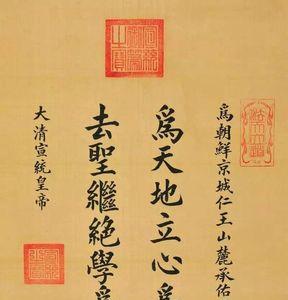 爲朝鮮京城仁王山麓承佑
爲天地立心爲
去聖繼絕學爲
大清宣統皇帝